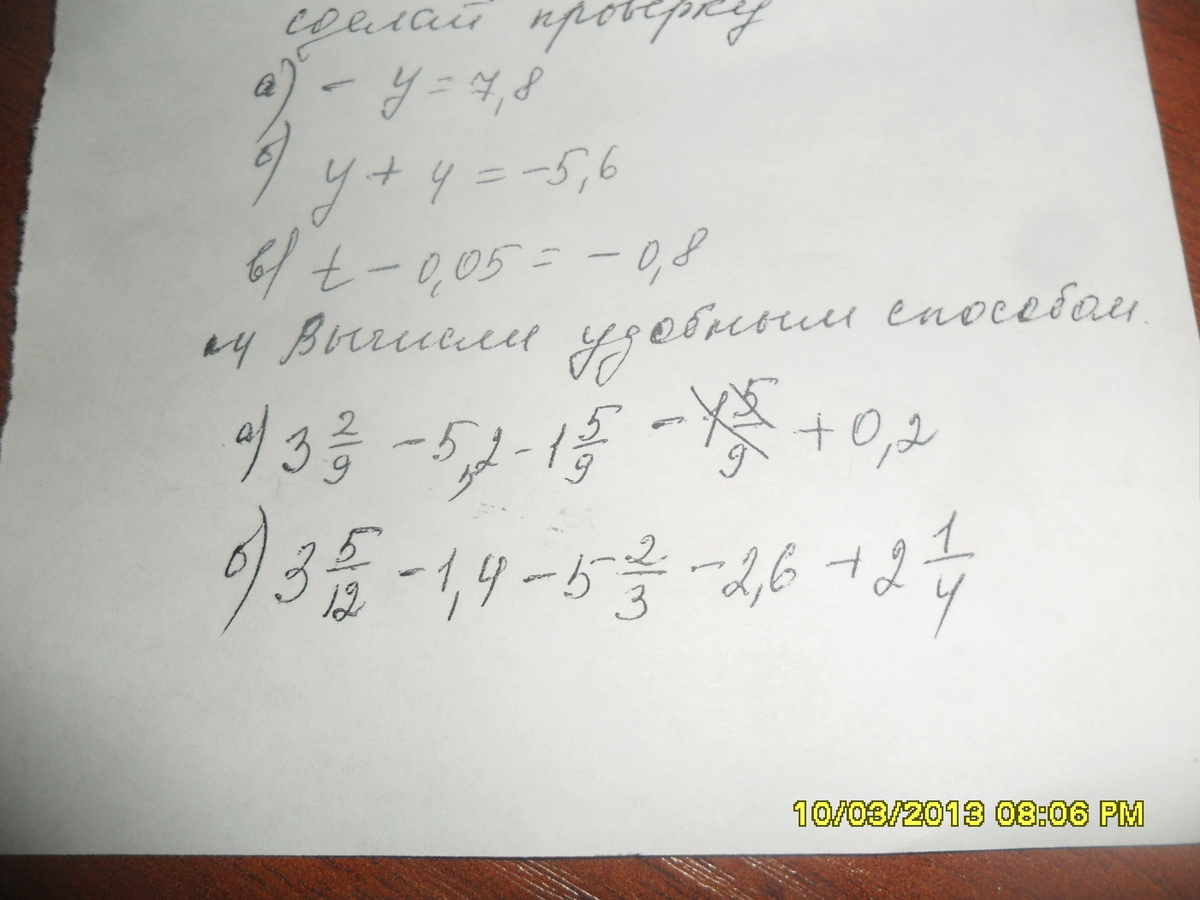 сделай проверку
а) - y = 7,8
б) y + 4 = -5,6
в) t - 0,05 = - 0,8
4 Вычисли удобным способом
а) 3 2/9 - 5,2 - 1 5/9 - 1 5/9 + 0,2
б) 3 5/12 - 1,4 - 5 2/3 - 2,6 + 2 1/4
10/03/2013 08:06 PM